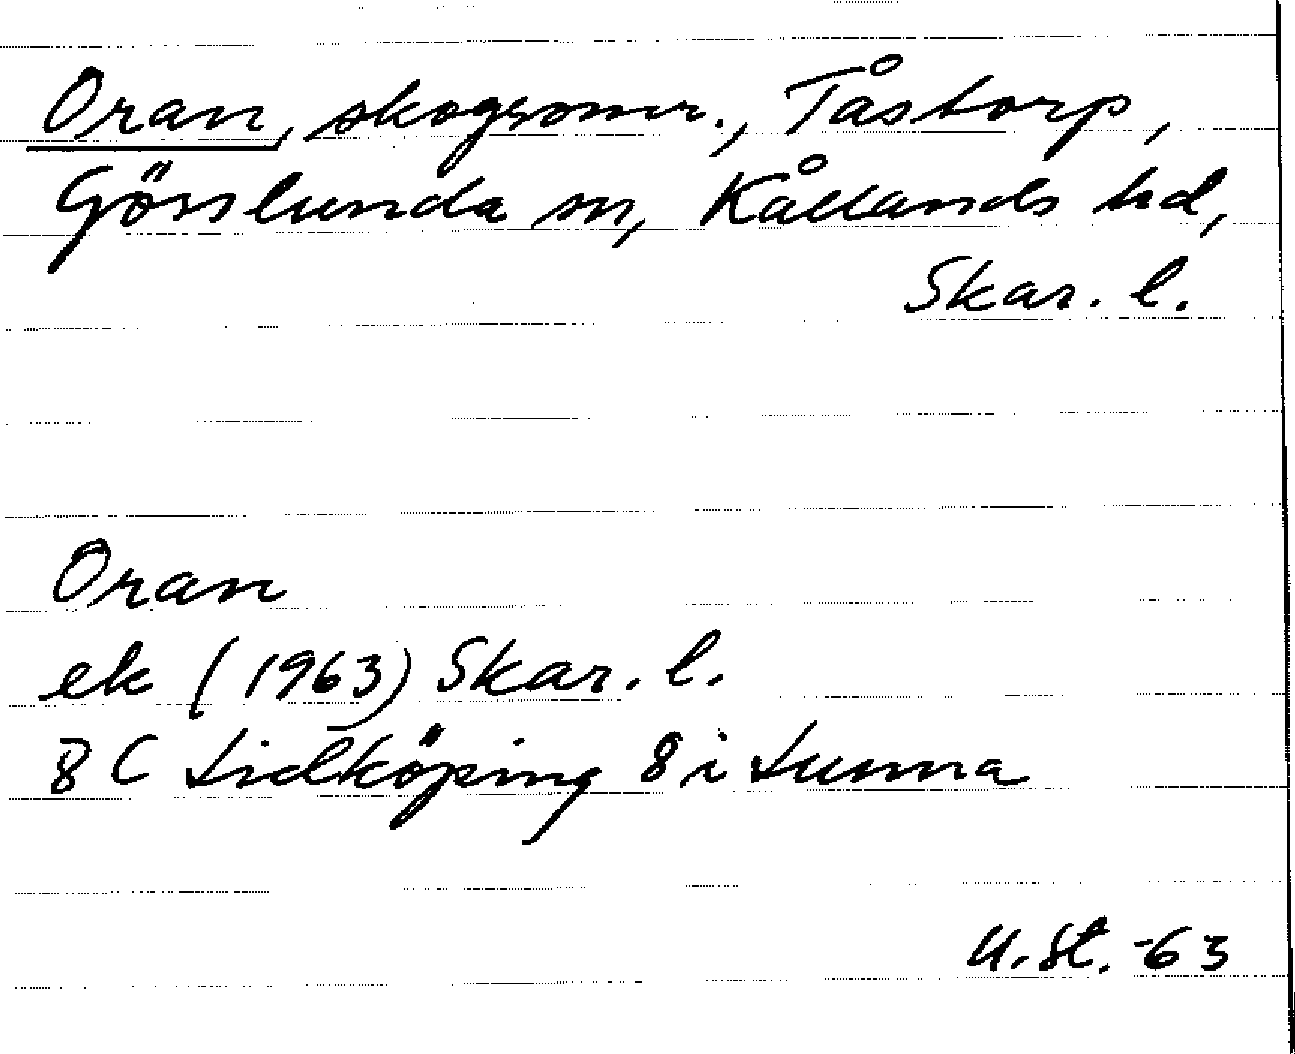 Oran, skogsomr., Tåstorp,
Gösslunda sn, Kållands hd,
Skar. l.
Oran
ek (1963) Skar. l.
8 C Lidköping 8 i Lunna
U.St. -63